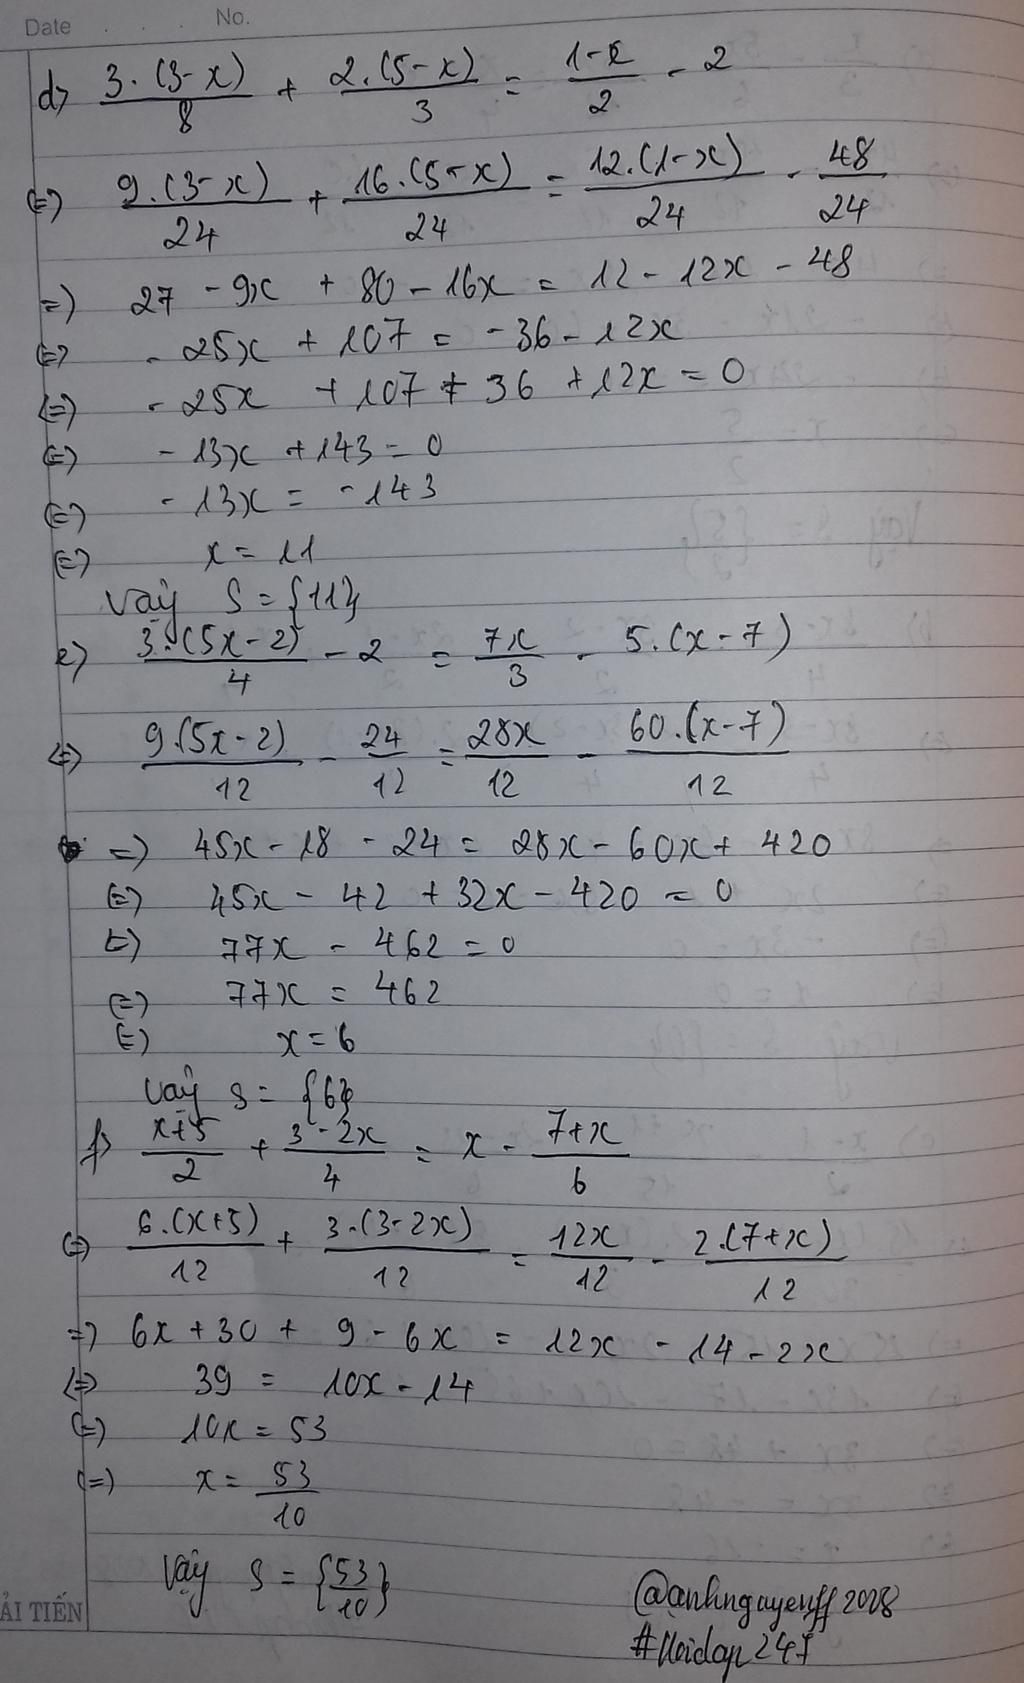 Date . . No.
d) 3.(3-x)/8 + 2.(5-x)/3 = 1-x/2 - 2
(=) 9.(3-x)/24 + 16.(5-x)/24 = 12.(1-x)/24 - 48/24
=) 27 - 9x + 80 - 16x = 12 - 12x - 48
(=) - 25x + 107 = -36 - 12x
(=) - 25x + 107 + 36 + 12x = 0
(=) - 13x + 143 = 0
(=) - 13x = - 143
(=) x = 11
Vậy S = {11}
e) 3.(5x-2)/4 - 2 = 7x/3 - 5.(x-7)
(=) 9.(5x-2)/12 - 24/12 = 28x/12 - 60.(x-7)/12
=) 45x - 18 - 24 = 28x - 60x + 420
(=) 45x - 42 + 32x - 420 = 0
(=) 77x - 462 = 0
(=) 77x = 462
(=) x = 6
Vậy S = {6}
f) x+5/2 + 3-2x/4 = x - 7+x/6
(=) 6.(x+5)/12 + 3.(3-2x)/12 = 12x/12 - 2.(7+x)/12
=) 6x + 30 + 9 - 6x = 12x - 14 - 2x
(=) 39 = 10x - 14
(=) 10x = 53
(=) x = 53/10
Vậy S = {53/10}
ẢI TIẾN
@anhnguyenff2008
#Hoidap247